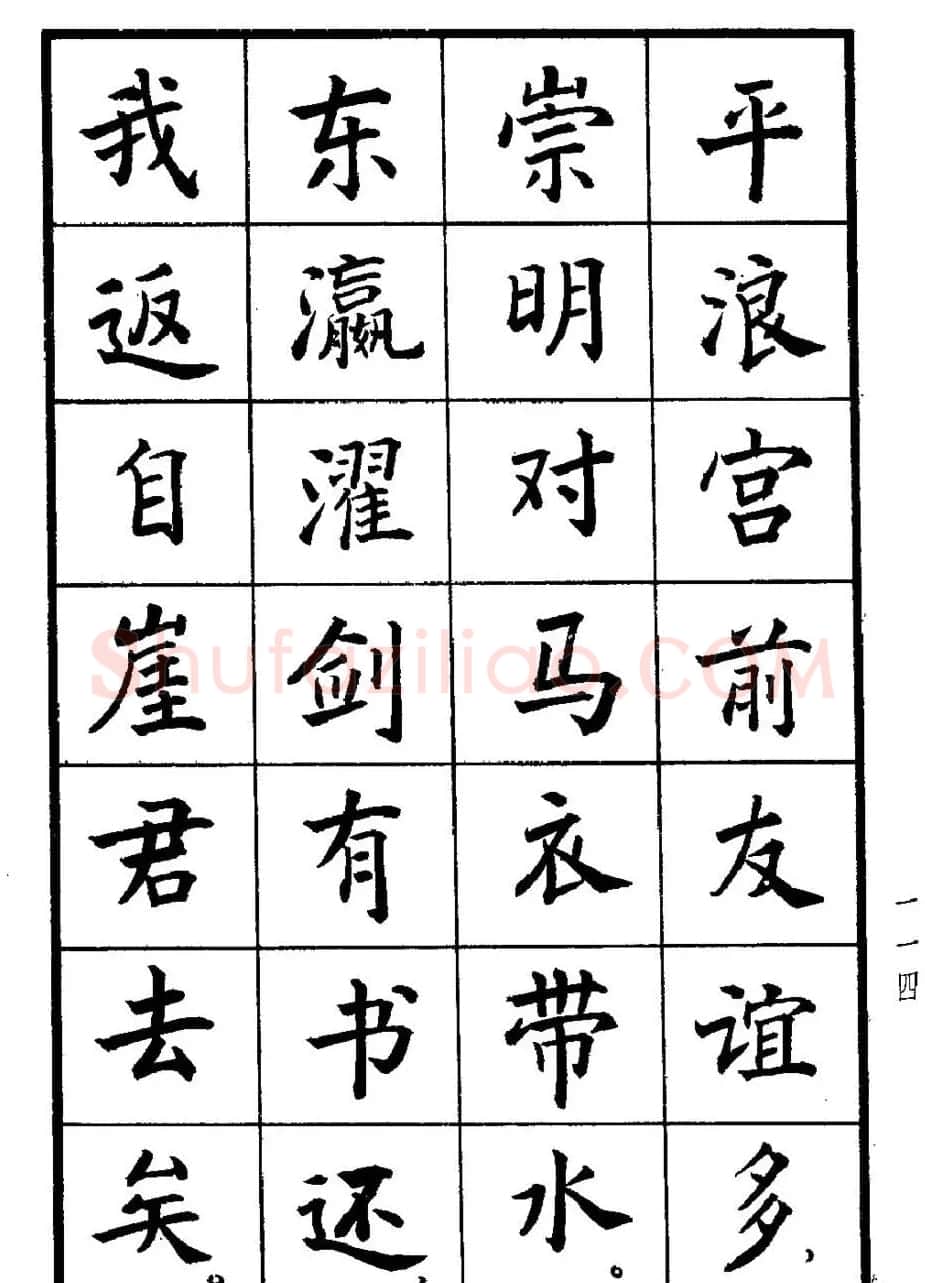 平浪宫前友谊多，
崇明对马衣带水。
东瀛濯剑有书还，
我返自崖君去矣。
一一四
Shufaziliao.COM